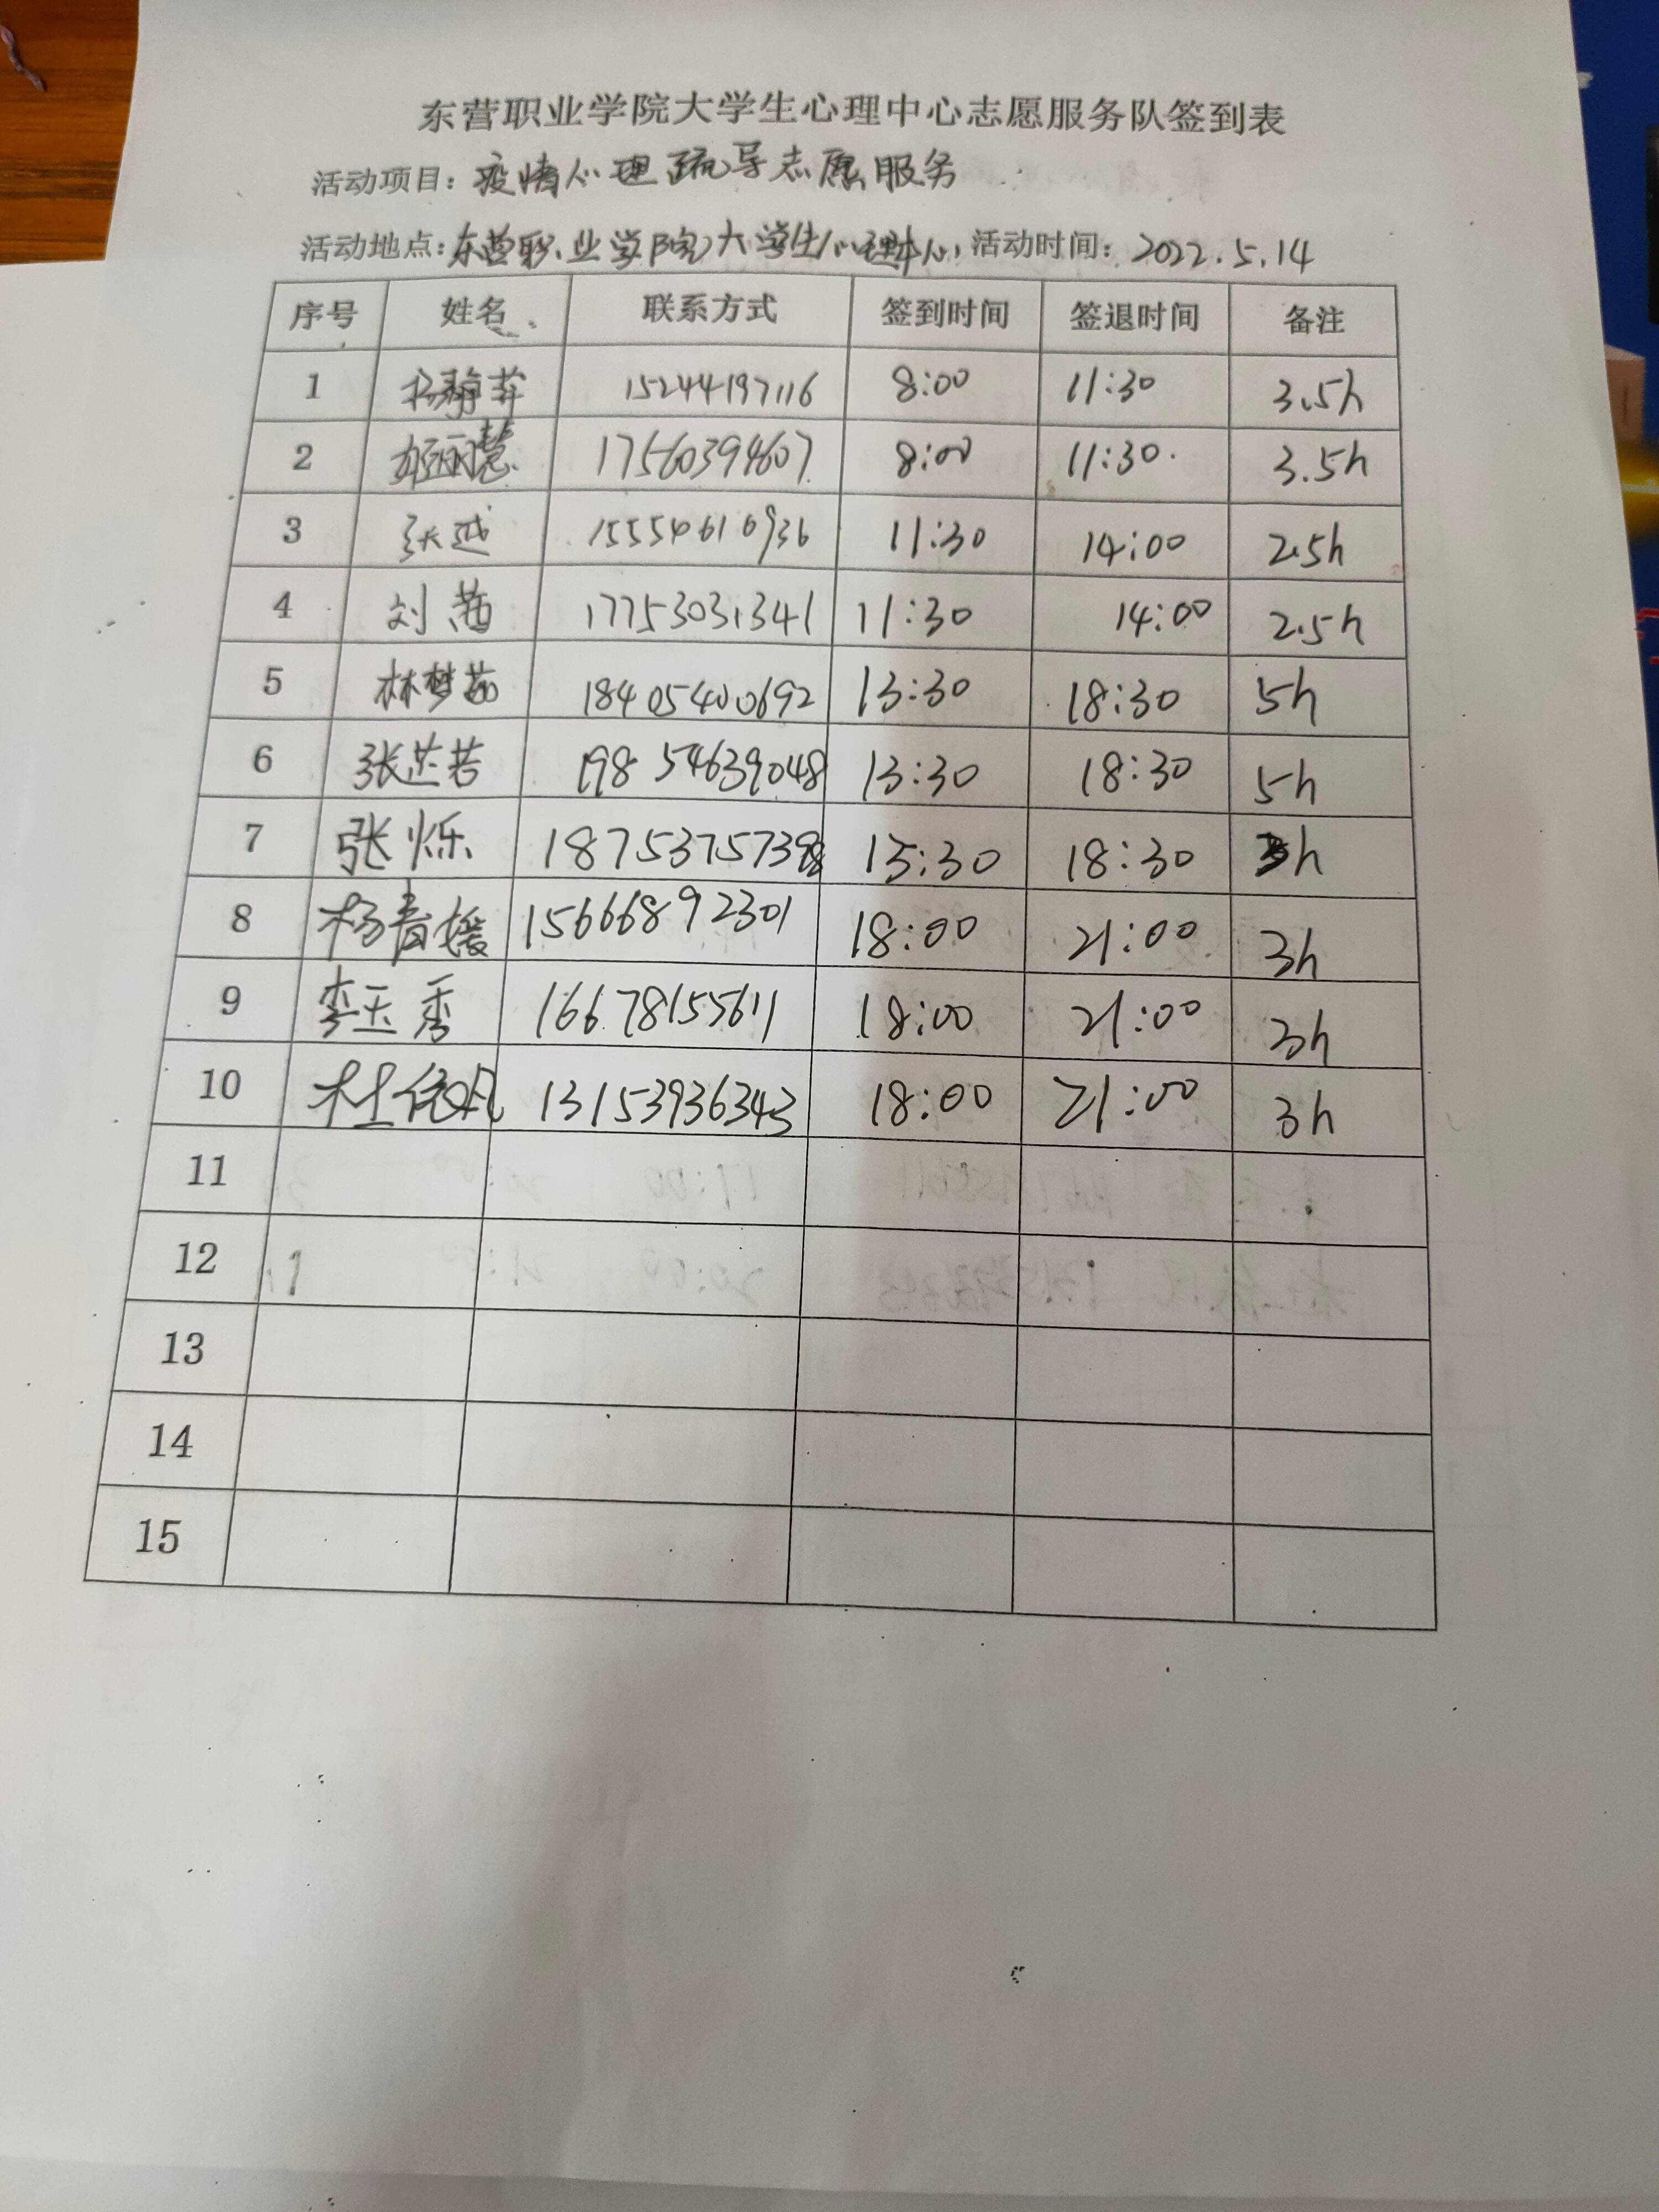 东营职业学院大学生心理中心志愿服务队签到表
活动项目：疫情心理疏导志愿服务
活动地点：东营职业学院大学生心理中心 活动时间：2022.5.14
序号 姓名 联系方式 签到时间 签退时间 备注
1 杨静 15244197116 8:00 11:30 3.5h
2 姬丽慧 17560394607 8:00 11:30 3.5h
3 张越 15554610936 11:30 14:00 2.5h
4 刘茜 17753031341 11:30 14:00 2.5h
5 林梦茹 18405400692 13:30 18:30 5h
6 张芷若 19854639048 13:30 18:30 5h
7 张烁 18753757398 13:30 18:30 h
8 杨青媛 15666892301 18:00 21:00 3h
9 李玉秀 16678155611 18:00 21:00 3h
10 杜 13153936343 18:00 21:00 3h
11
12
13
14
15